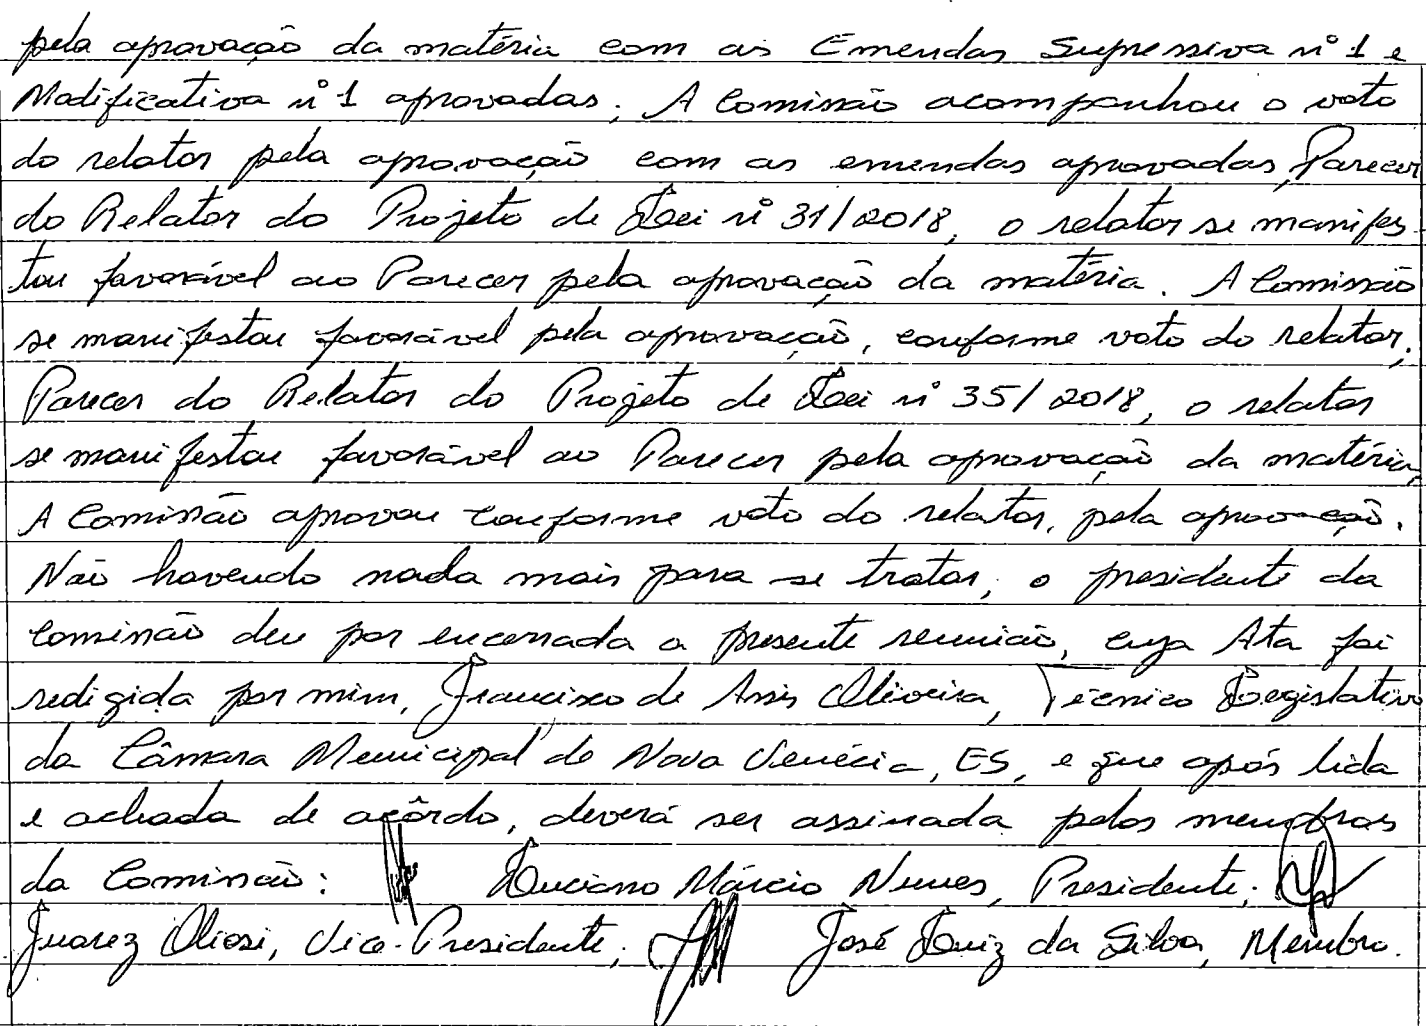 pela aprovação da matéria com as Emendas Supressiva nº 1 e
Modificativa nº 1 aprovadas. A Comissão acompanhou o voto
do relator pela aprovação com as emendas aprovadas, Parecer
do Relator do Projeto de Lei nº 31/2018, o relator se manifes-
tou favorável ao Parecer pela aprovação da matéria. A Comissão
se manifestou favorável pela aprovação, conforme voto do relator;
Parecer do Relator do Projeto de Lei nº 35/2018, o relator
se manifestou favorável ao Parecer pela aprovação da matéria,
A Comissão aprovou conforme voto do relator, pela aprovação.
Não havendo nada mais para se tratar, o presidente da
Comissão deu por encerrada a presente reunião, cuja Ata foi
redigida por mim, Francisco de Assis Oliveira, Técnico Legislativo
da Câmara Municipal de Nova Venécia, ES, e que após lida
e achada de acôrdo, deverá ser assinada pelos membros
da Comissão: Luciano Márcio Nunes, Presidente;
Juarez Oliosi, Vice-Presidente; José Luiz da Silva, Membro.